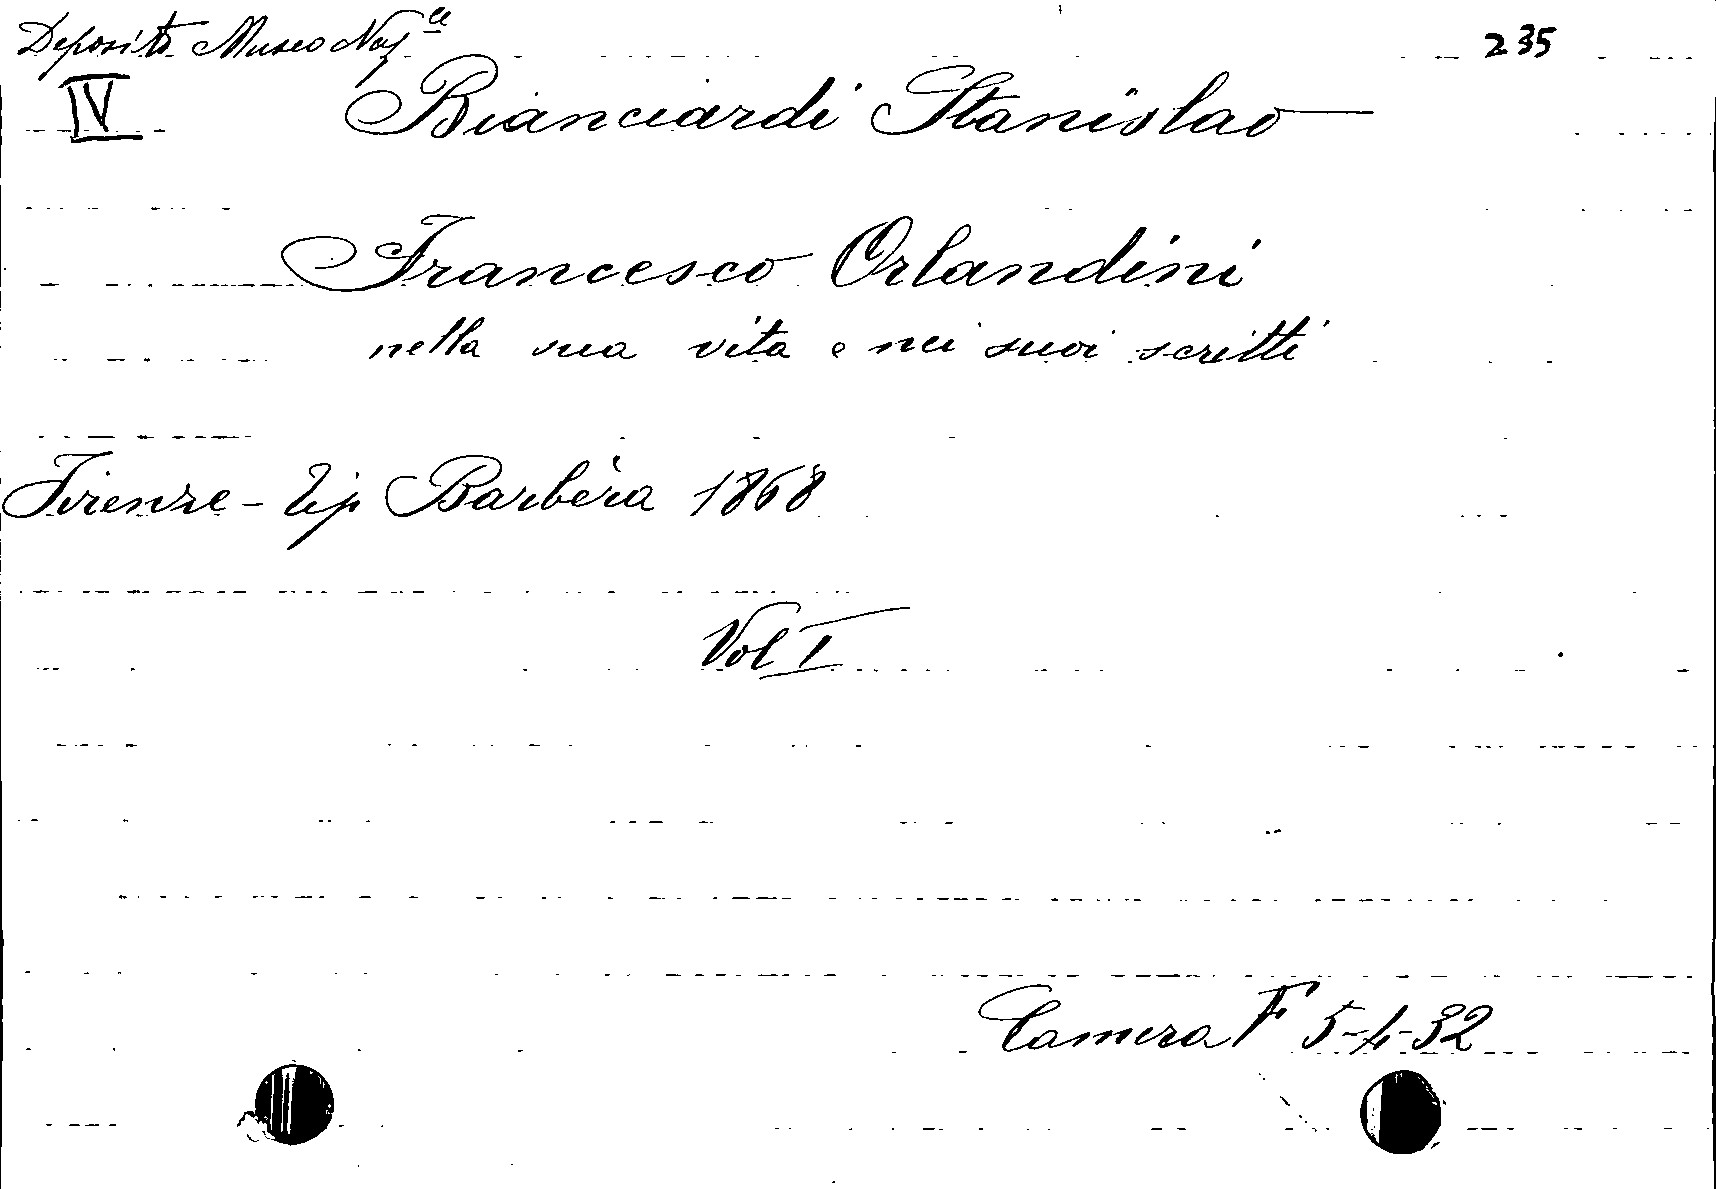 Deposito Museo Naz.le
235
IV
Bianciardi Stanislao
Francesco Orlandini
nella sua vita e nei suoi scritti
Firenze - Tip Barbèra 1868
Vol I
Camera F 5-4-32